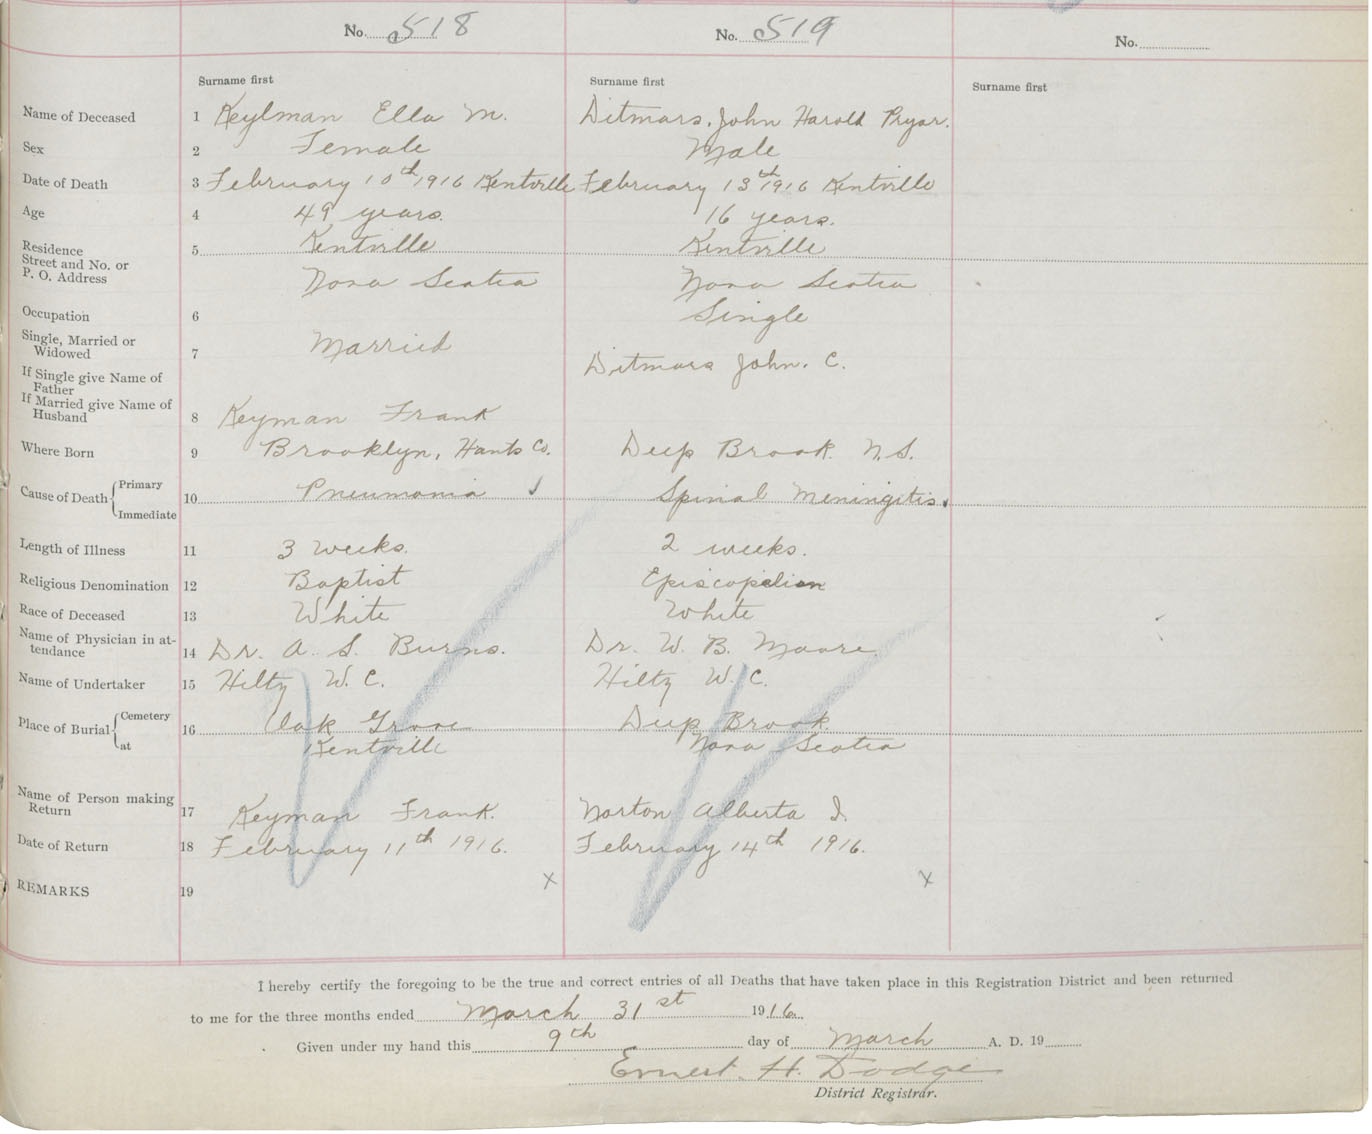 No. 518 No. 519 No.
Surname first Surname first Surname first
Name of Deceased 1 Keylman Ella M. Ditmars, John Harold Pryor.
Sex 2 Female Male
Date of Death 3 February 10th 1916 Kentville February 13th 1916 Kentville
Age 4 49 years. 16 years.
Residence 5 Kentville Kentville
Street and No. or
P. O. Address Nova Scotia Nova Scotia
Occupation 6 Single
Single, Married or
Widowed 7 Married
Ditmars John. C.
If Single give Name of
Father
If Married give Name of
Husband 8 Keyman Frank
Where Born 9 Brooklyn, Hants Co. Deep Brook N.S.
Cause of Death { Primary
10 Pneumonia Spinal Meningitis.
Immediate
Length of Illness 11 3 weeks. 2 weeks.
Religious Denomination 12 Baptist Episcopelian
Race of Deceased 13 White White
Name of Physician in at-
tendance 14 Dr. A. S. Burns. Dr. W. B. Moore
Name of Undertaker 15 Hiltz W. C. Hiltz W. C.
Place of Burial { Cemetery 16 Oak Grove Deep Brook
at Kentville Nova Scotia
Name of Person making
Return 17 Keyman Frank. Norton Alberta I.
Date of Return 18 February 11th 1916. February 14th 1916.
REMARKS 19 x x
I hereby certify the foregoing to be the true and correct entries of all Deaths that have taken place in this Registration District and been returned
to me for the three months ended March 31st 1916
Given under my hand this 9th day of March A. D. 19
Ernest H. Dodge
District Registrar.